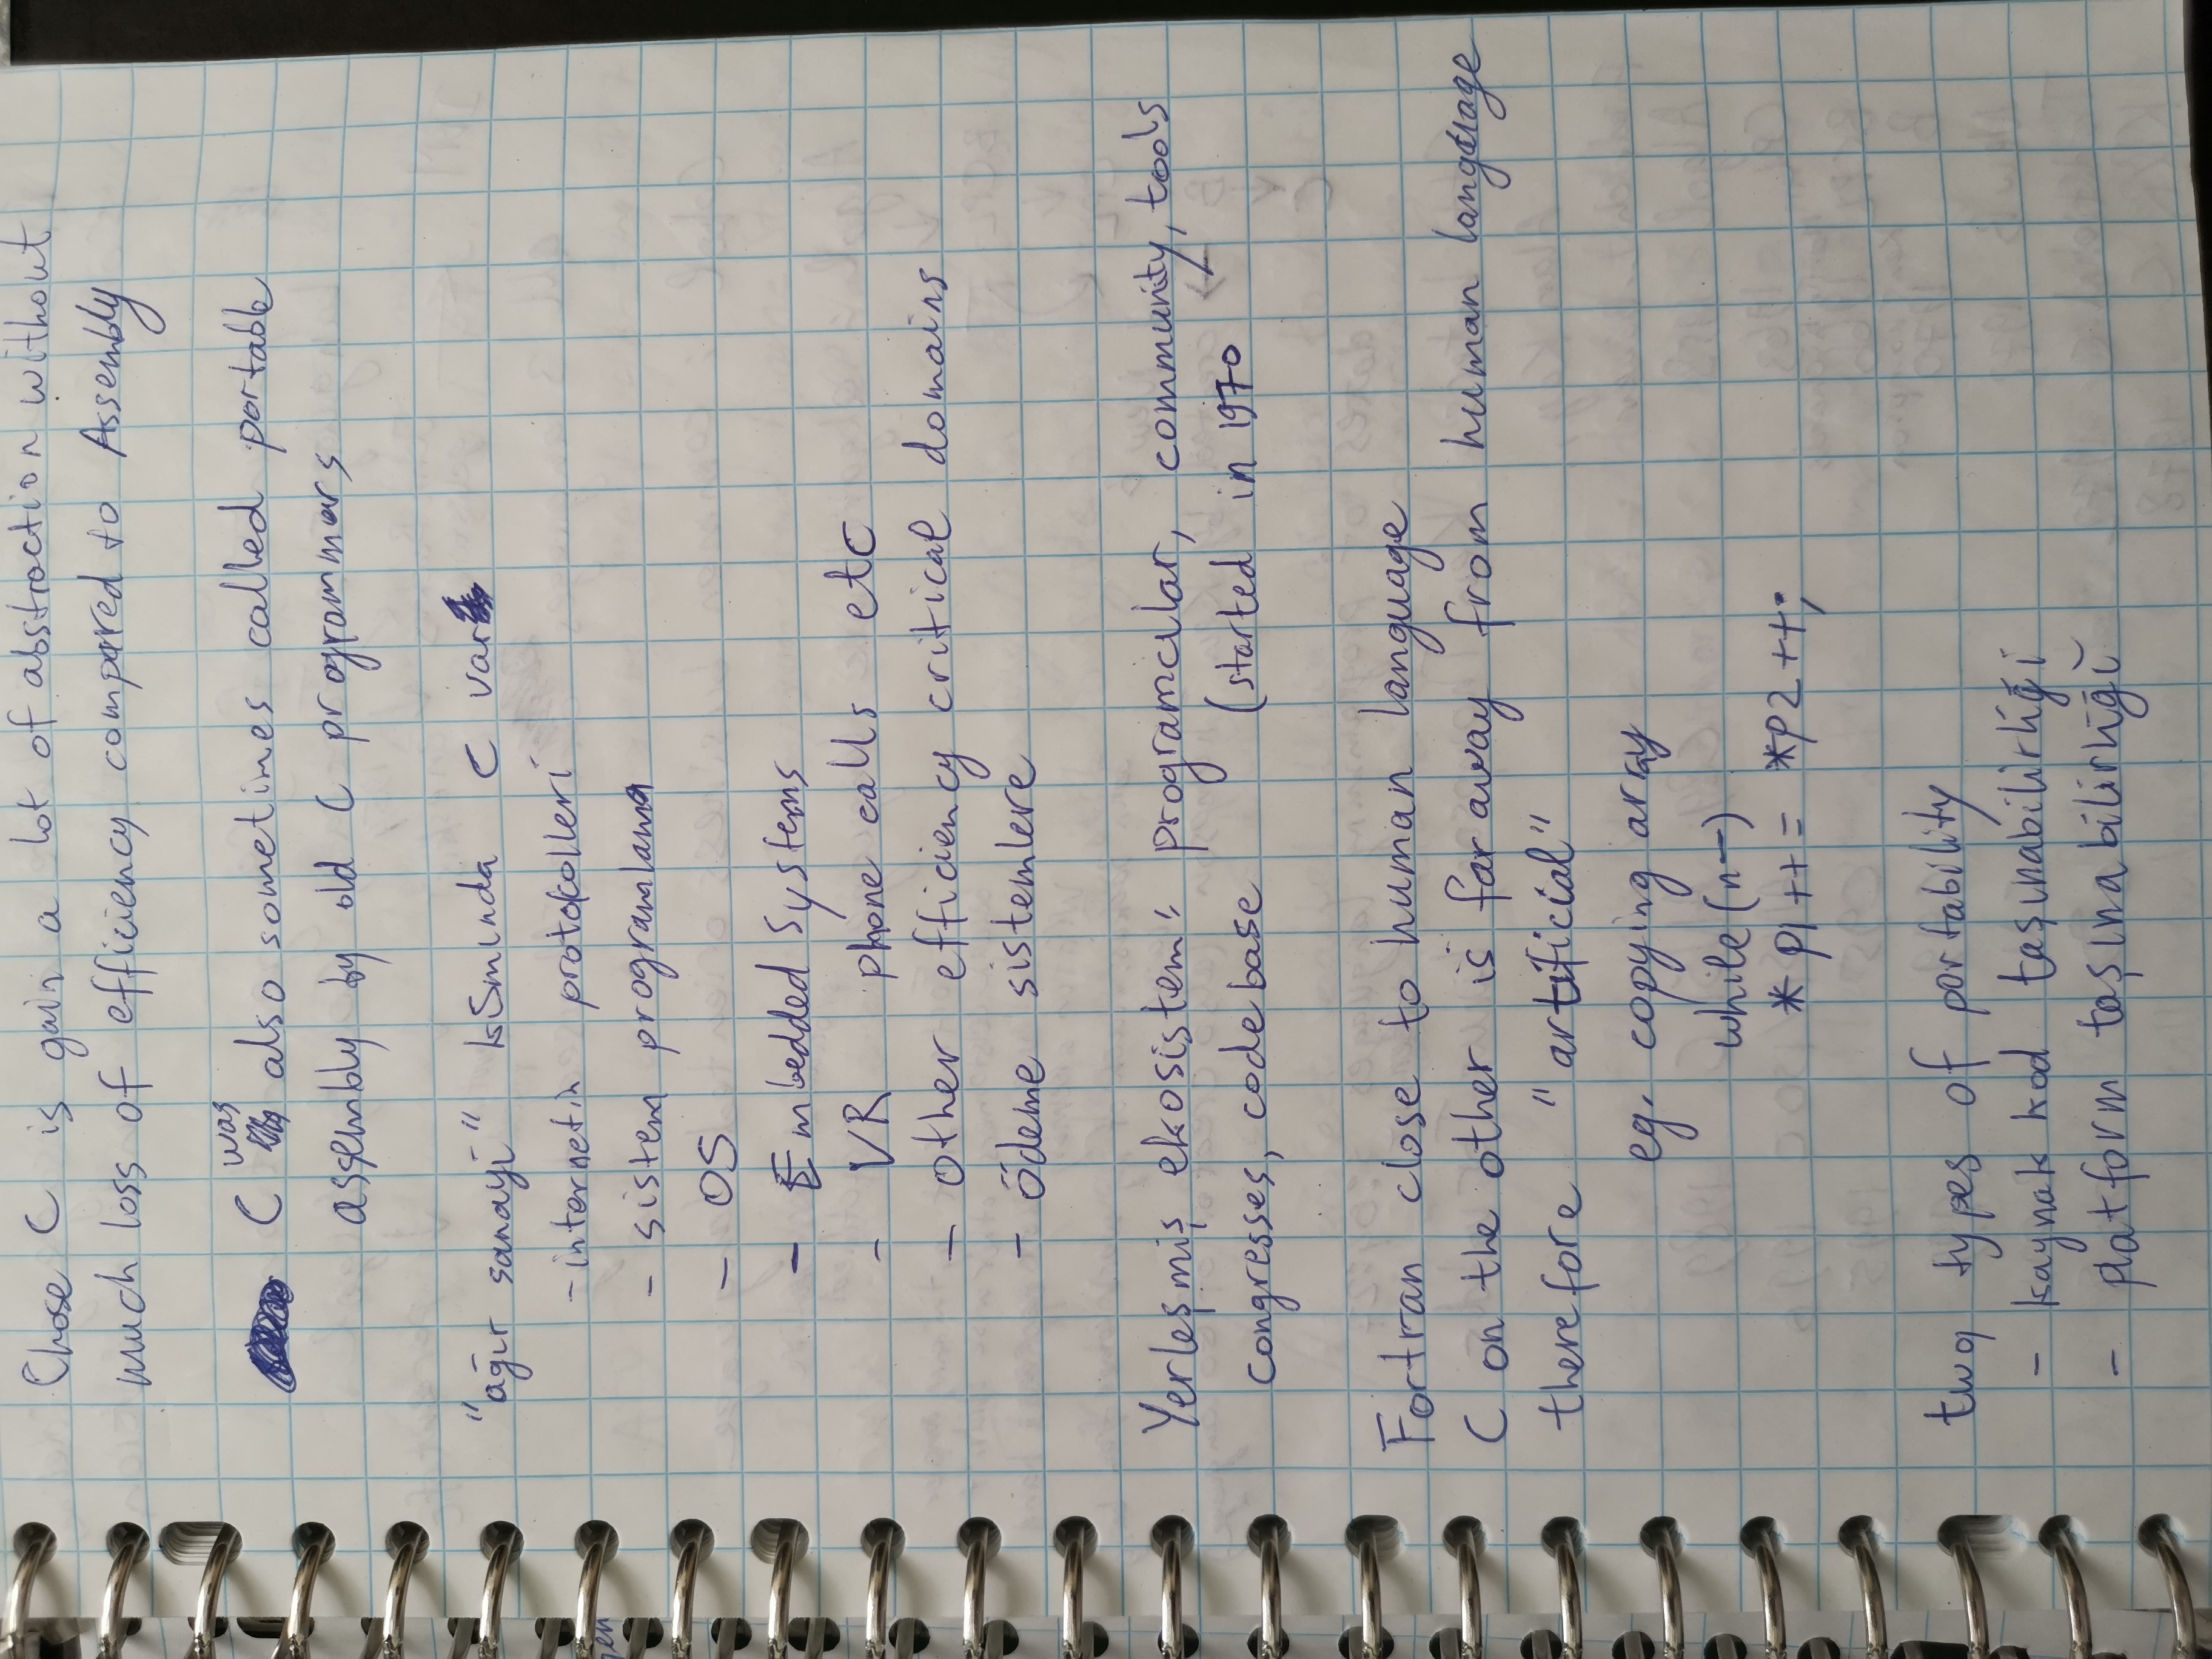 Chose C is gain a lot of abstraction without
much loss of efficiency compared to Assembly
C was also sometimes called portable
assembly by old C programmars
"ağır sanayi" kısmında C var
- internetin protokolleri
- sistem programlama
- OS
- Embedded Systems
- VR phone calls etc
- other efficiency critical domains
- ödeme sistemlere
Yerleşmiş ekosistem: programcılar, community, tools
congresses, codebase (started in 1970
Fortran close to human language
C on the other is far away from human language
therefore "artificial"
eg. copying array
while (n--)
*p1++ = *p2++;
two types of portability
- kaynak kod taşınabilirliği
- platform taşınabilirliği